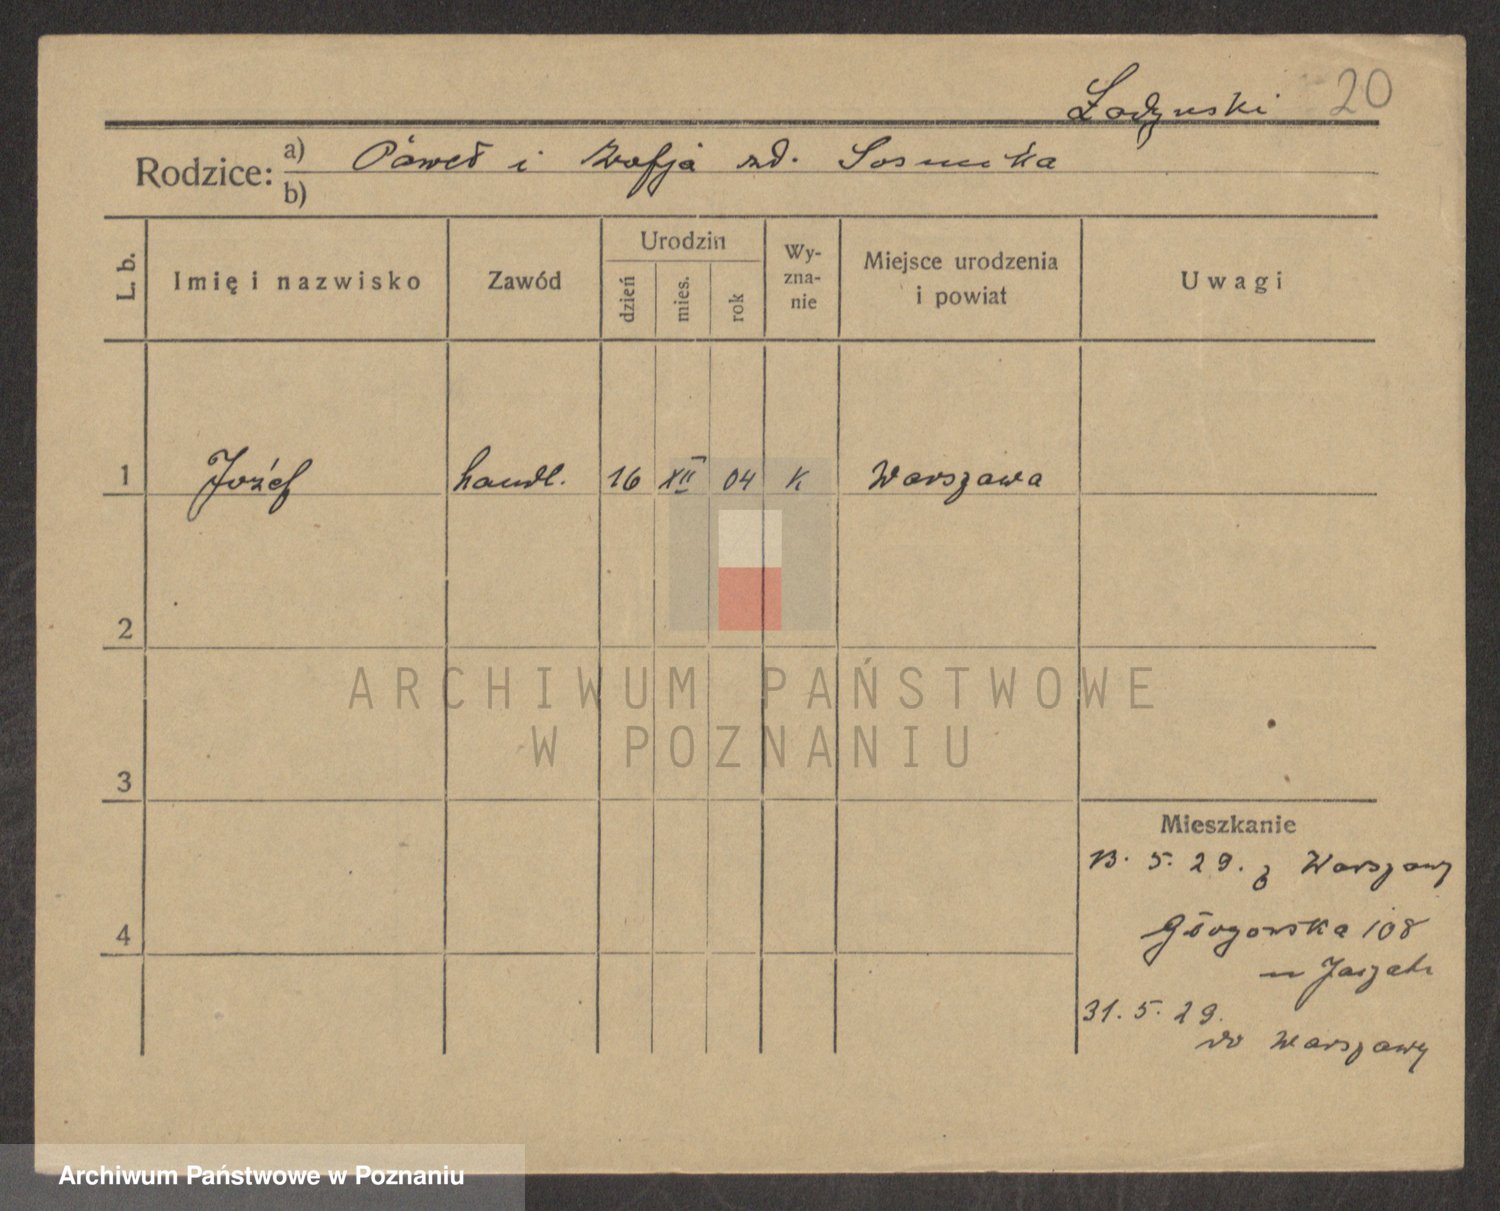 Żodzyski 20
Rodzice: a) Paweł i Zofja zd. Sosnicka
b)
L. b. Imię i nazwisko Zawód Urodzin dzień mies. rok Wy-zna-nie Miejsce urodzenia i powiat Uwagi
1 Józef handl. 16 XII 04 K Warszawa
2
3
4
Mieszkanie
13. 5. 29. z Warszawy
Głogowska 108
31. 5. 29.
do Warszawy
ARCHIWUM PAŃSTWOWE
W POZNANIU
Archiwum Państwowe w Poznaniu